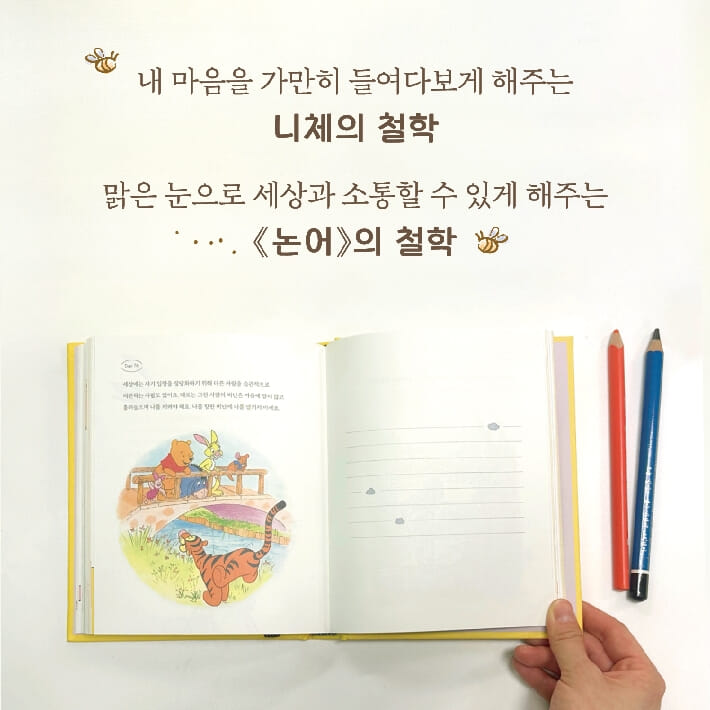 내 마음을 가만히 들여다보게 해주는
니체의 철학
맑은 눈으로 세상과 소통할 수 있게 해주는
《논어》의 철학
Day 76
세상에는 자기 입장을 정당화하기 위해 다른 사람을 습관적으로
비난하는 사람도 있어요. 때로는 그런 사람이 비난은 마음에 담지 말고
흘려들으며 나를 지켜야 해요. 나를 향한 비난에 나를 맡기지 마세요.